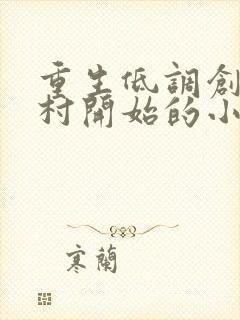 重生低調創
村開始的小
寒蘭